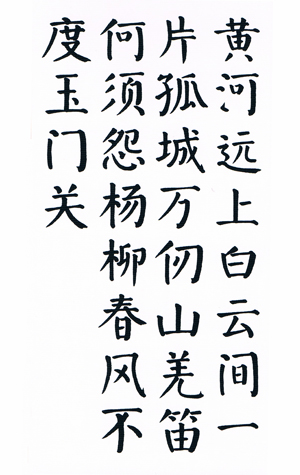 黄河远上白云间一
片孤城万仞山羌笛
何须怨杨柳春风不
度玉门关